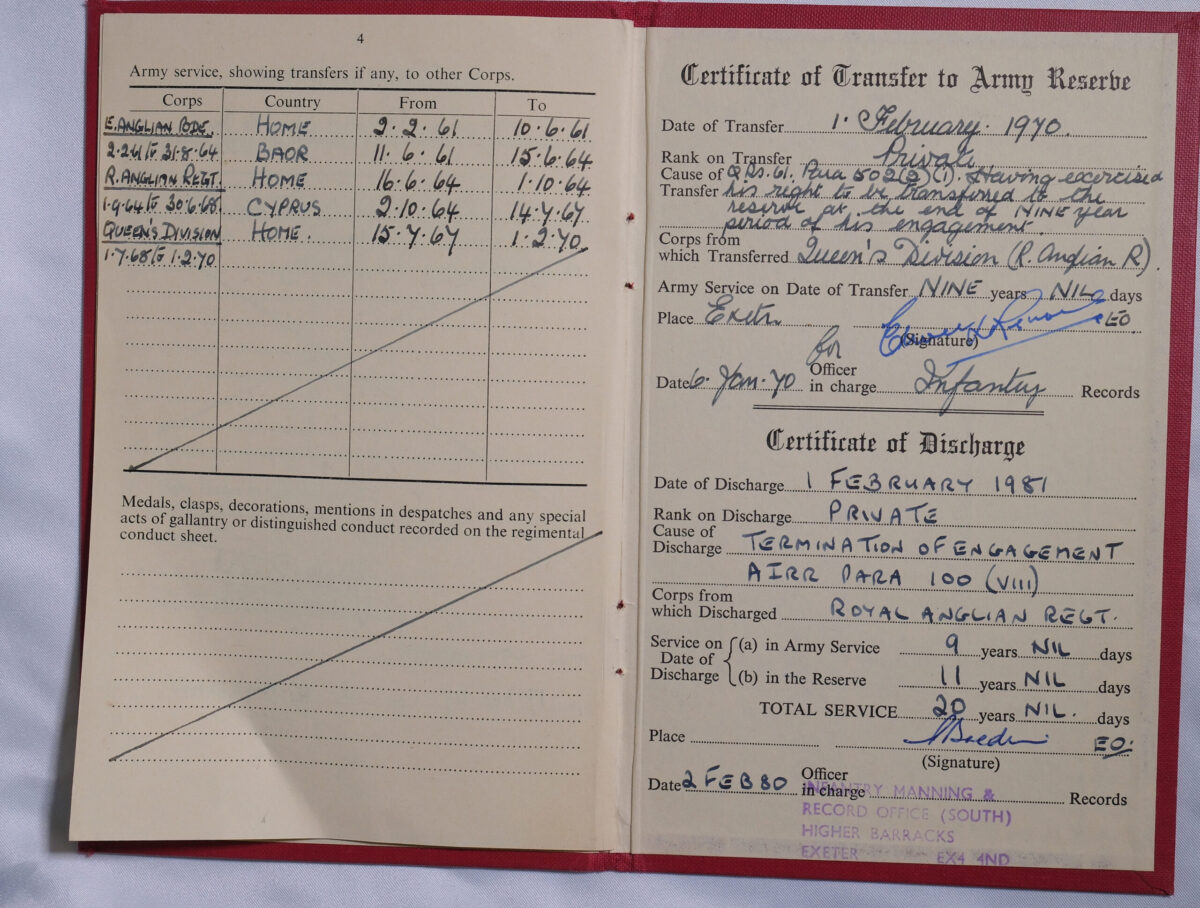 4
Army service, showing transfers if any, to other Corps.
Corps Country From To
E. ANGLIAN BDE. HOME 2.2.61 10.6.61
2.2.61 to 31.8.64 BAOR 11.6.61 15.6.64
R. ANGLIAN REGT. HOME 16.6.64 1.10.64
1.9.64 to 30.6.68 CYPRUS 2.10.64 14.7.67
QUEEN'S DIVISION HOME. 15.7.67 1.2.70
1.7.68 to 1.2.70
Medals, clasps, decorations, mentions in despatches and any special
acts of gallantry or distinguished conduct recorded on the regimental
conduct sheet.
4
Certificate of Transfer to Army Reserve
Date of Transfer 1. February. 1970.
Rank on Transfer Private
Cause of QRs. 61. Para 502(2)(1). Having exercised
Transfer his right to be transferred to the
reserve at the end of NINE year
period of his engagement.
Corps from
which Transferred Queen's Division (R. Anglian R).
Army Service on Date of Transfer NINE years NIL days
Place Exeter EO
(Signature)
for Officer
Date 6. Jan. 70 in charge Infantry Records
Certificate of Discharge
Date of Discharge 1 FEBRUARY 1981
Rank on Discharge PRIVATE
Cause of
Discharge TERMINATION OF ENGAGEMENT
AIRR PARA 100 (VIII)
Corps from
which Discharged ROYAL ANGLIAN REGT.
Service on (a) in Army Service 9 years NIL days
Date of
Discharge (b) in the Reserve 11 years NIL days
TOTAL SERVICE 20 years NIL. days
Place EO.
(Signature)
Officer
Date 2 FEB 80 in charge Records
INFANTRY MANNING &
RECORD OFFICE (SOUTH)
HIGHER BARRACKS
EXETER EX4 4ND